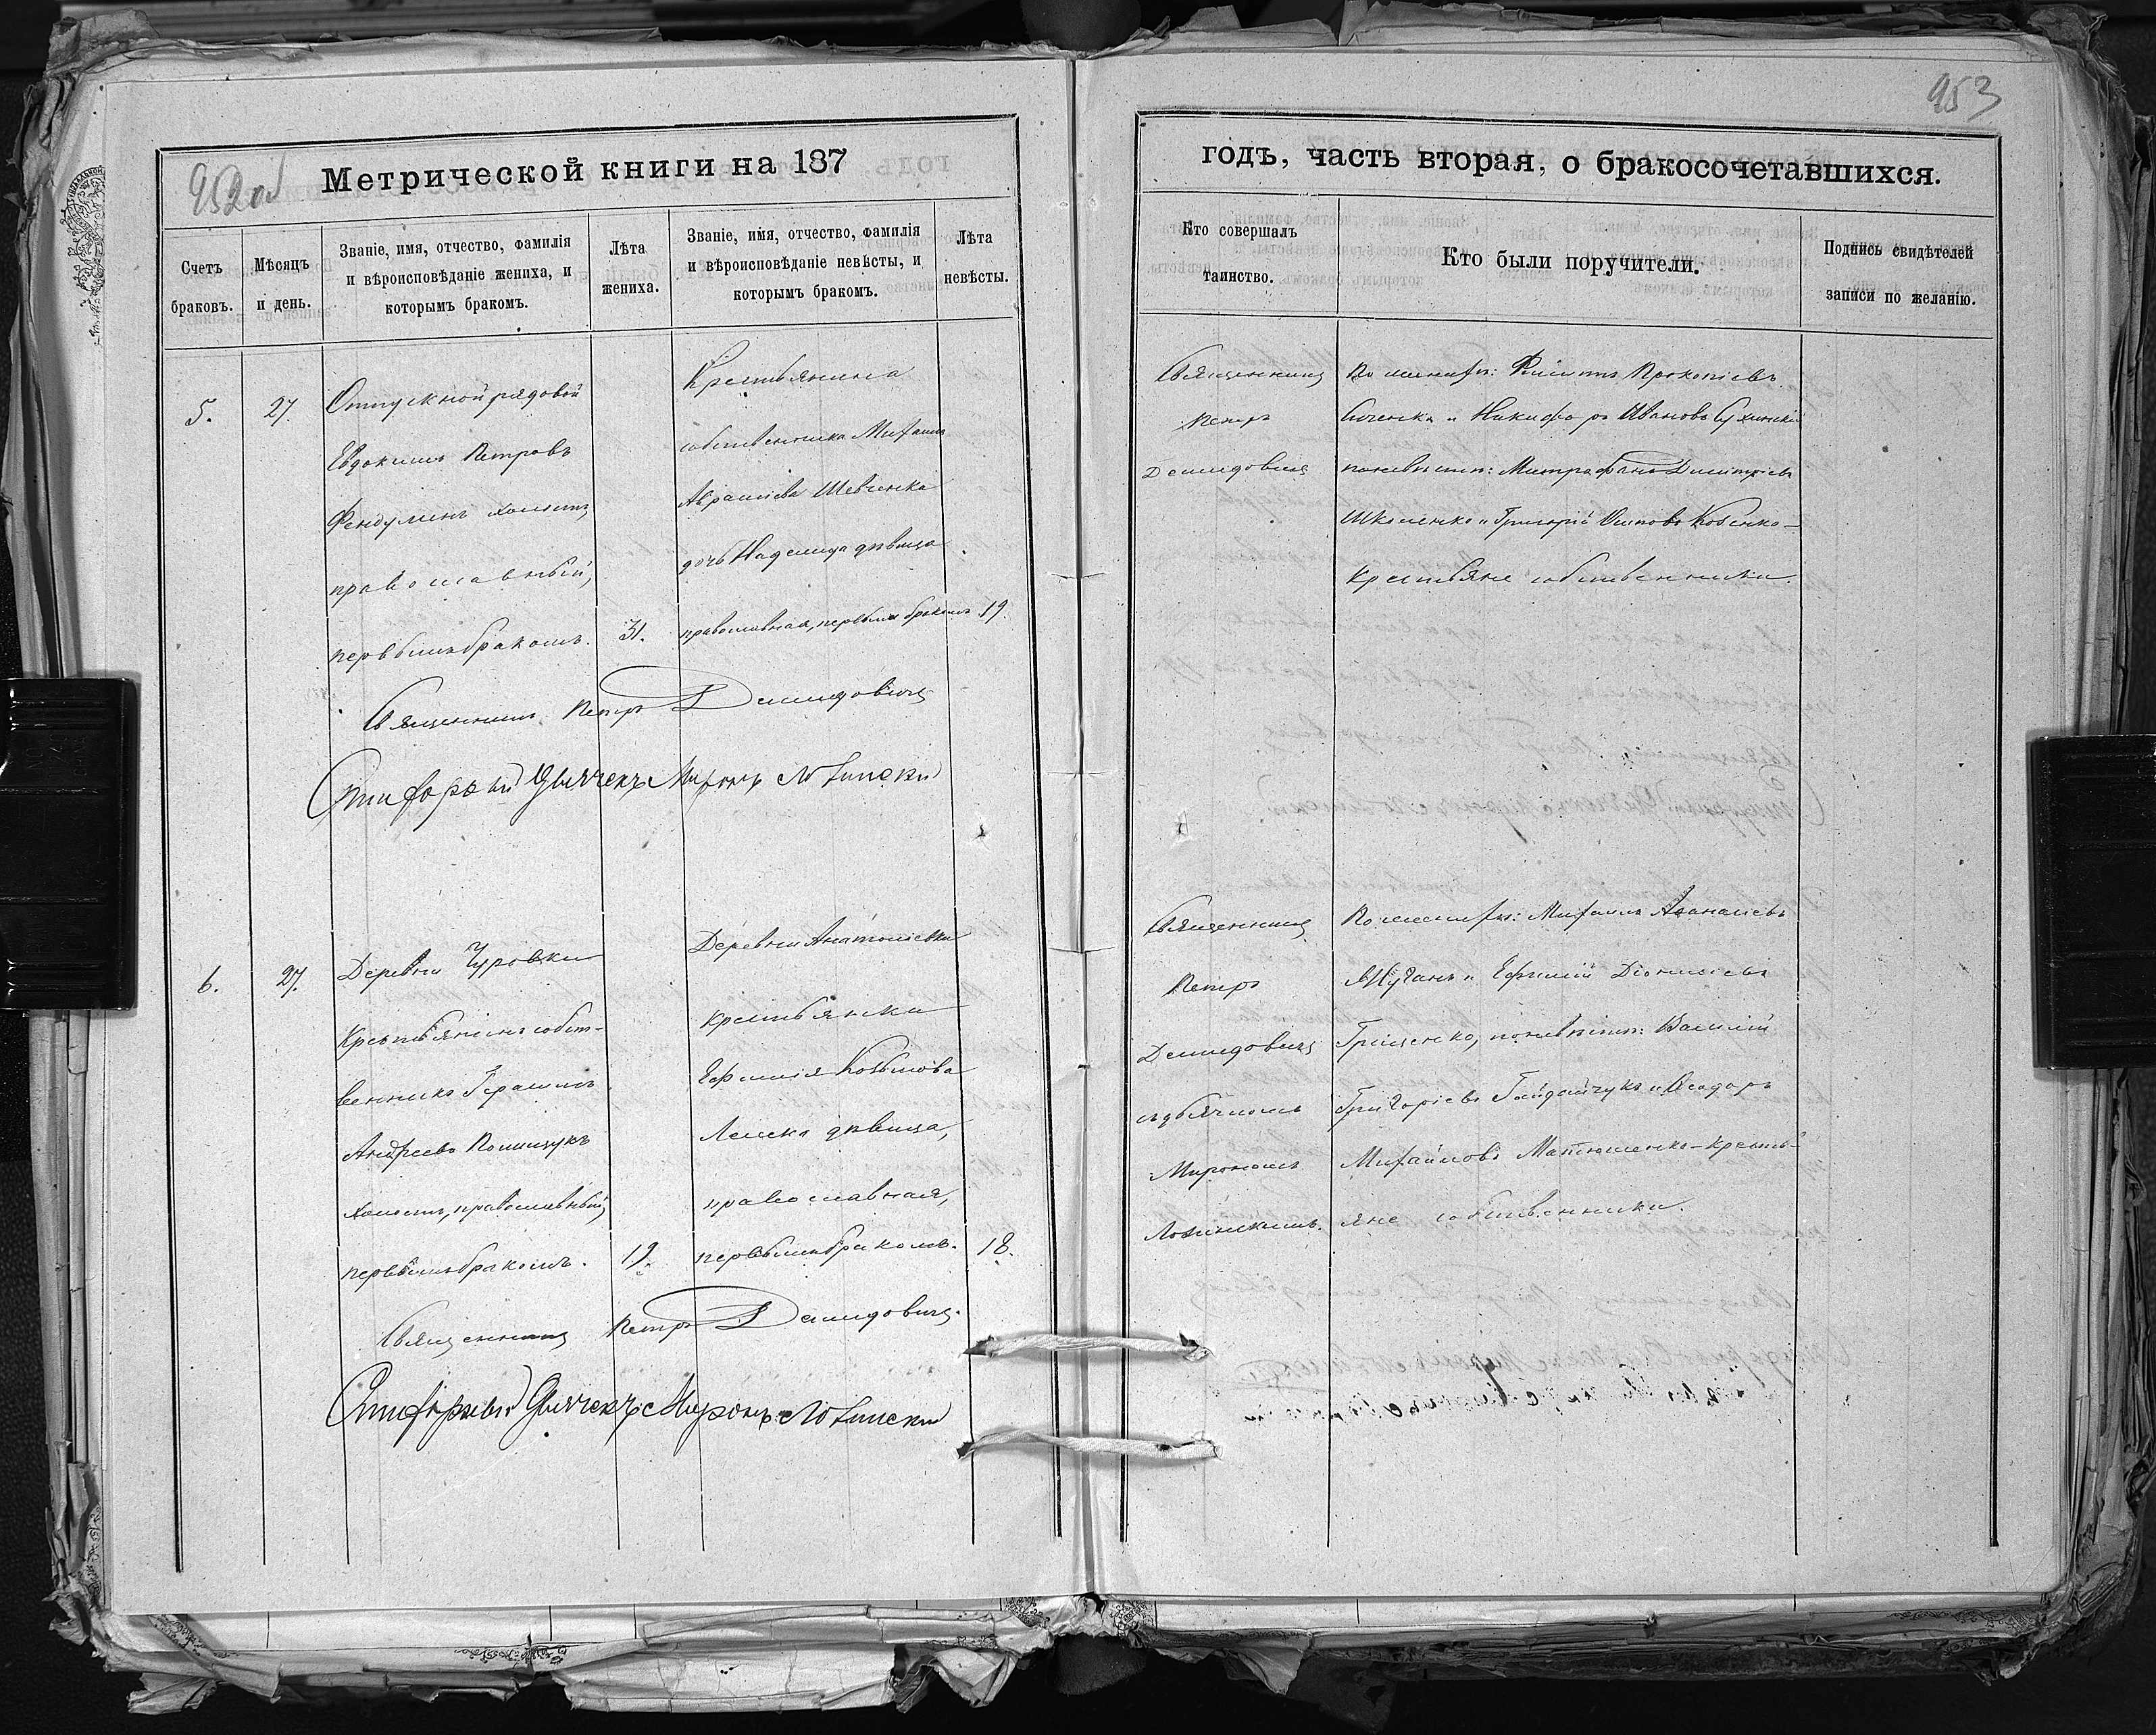 952об
Метрической книги на 187
Счетъ браковъ.
Мѣсяцъ и день.
Званіе, имя, отчество, фамилія
и вѣроисповѣданіе жениха, и
которымъ бракомъ.
Лѣта жениха.
Званіе, имя, отчество, фамилія
и вѣроисповѣданіе невѣсты, и
которымъ бракомъ.
Лѣта невѣсты.
5.
27.
Отпускной рядовой
Евдокимъ Петровъ
холостъ,
православный,
первымъ бракомъ.
31.
Крестьянина
собственника Михаила
Авраміева Шевченка
дочь Надежда дѣвица
православная, первымъ бракомъ
19.
Священникъ Петръ Демидовичъ
Дьячекъ Миронъ Лотинскій
6.
27.
Деревни Чуровки
Крестьянинъ собст-
венникъ Герасимъ
Андреевъ Полищукъ
холостъ, православный,
первымъ бракомъ.
19.
Деревни Анатоліевки
крестьянка
Ефимія
дѣвица,
православная,
первымъ бракомъ.
18.
Священникъ Петръ Демидовичъ.
Дьячекъ Миронъ Лотинскій
953
годъ, часть вторая, о бракосочетавшихся.
Кто совершалъ
таинство.
Кто были поручители.
Подпись свидѣтелей
записи по желанію.
Священникъ
Петръ
Демидовичъ
По женихѣ: Филиппъ Прокопіевъ
и Никифоръ Ивановъ Сухинскій
по невѣстѣ: Митрофанъ Димитріевъ
Школенко и Григорій Осиповъ
крестьяне собственники
Священникъ
Петръ
Демидовичъ
съ дьячкомъ
Мирономъ
Лотинскимъ.
По женихѣ: Михаилъ Афанасіевъ
и Ефимій Діонисіевъ
Грищенко, по невѣстѣ: Василій
Григоріевъ Гайдайчукъ и Ѳеодоръ
Михайловъ Матюшенко - кресть-
яне собственники.